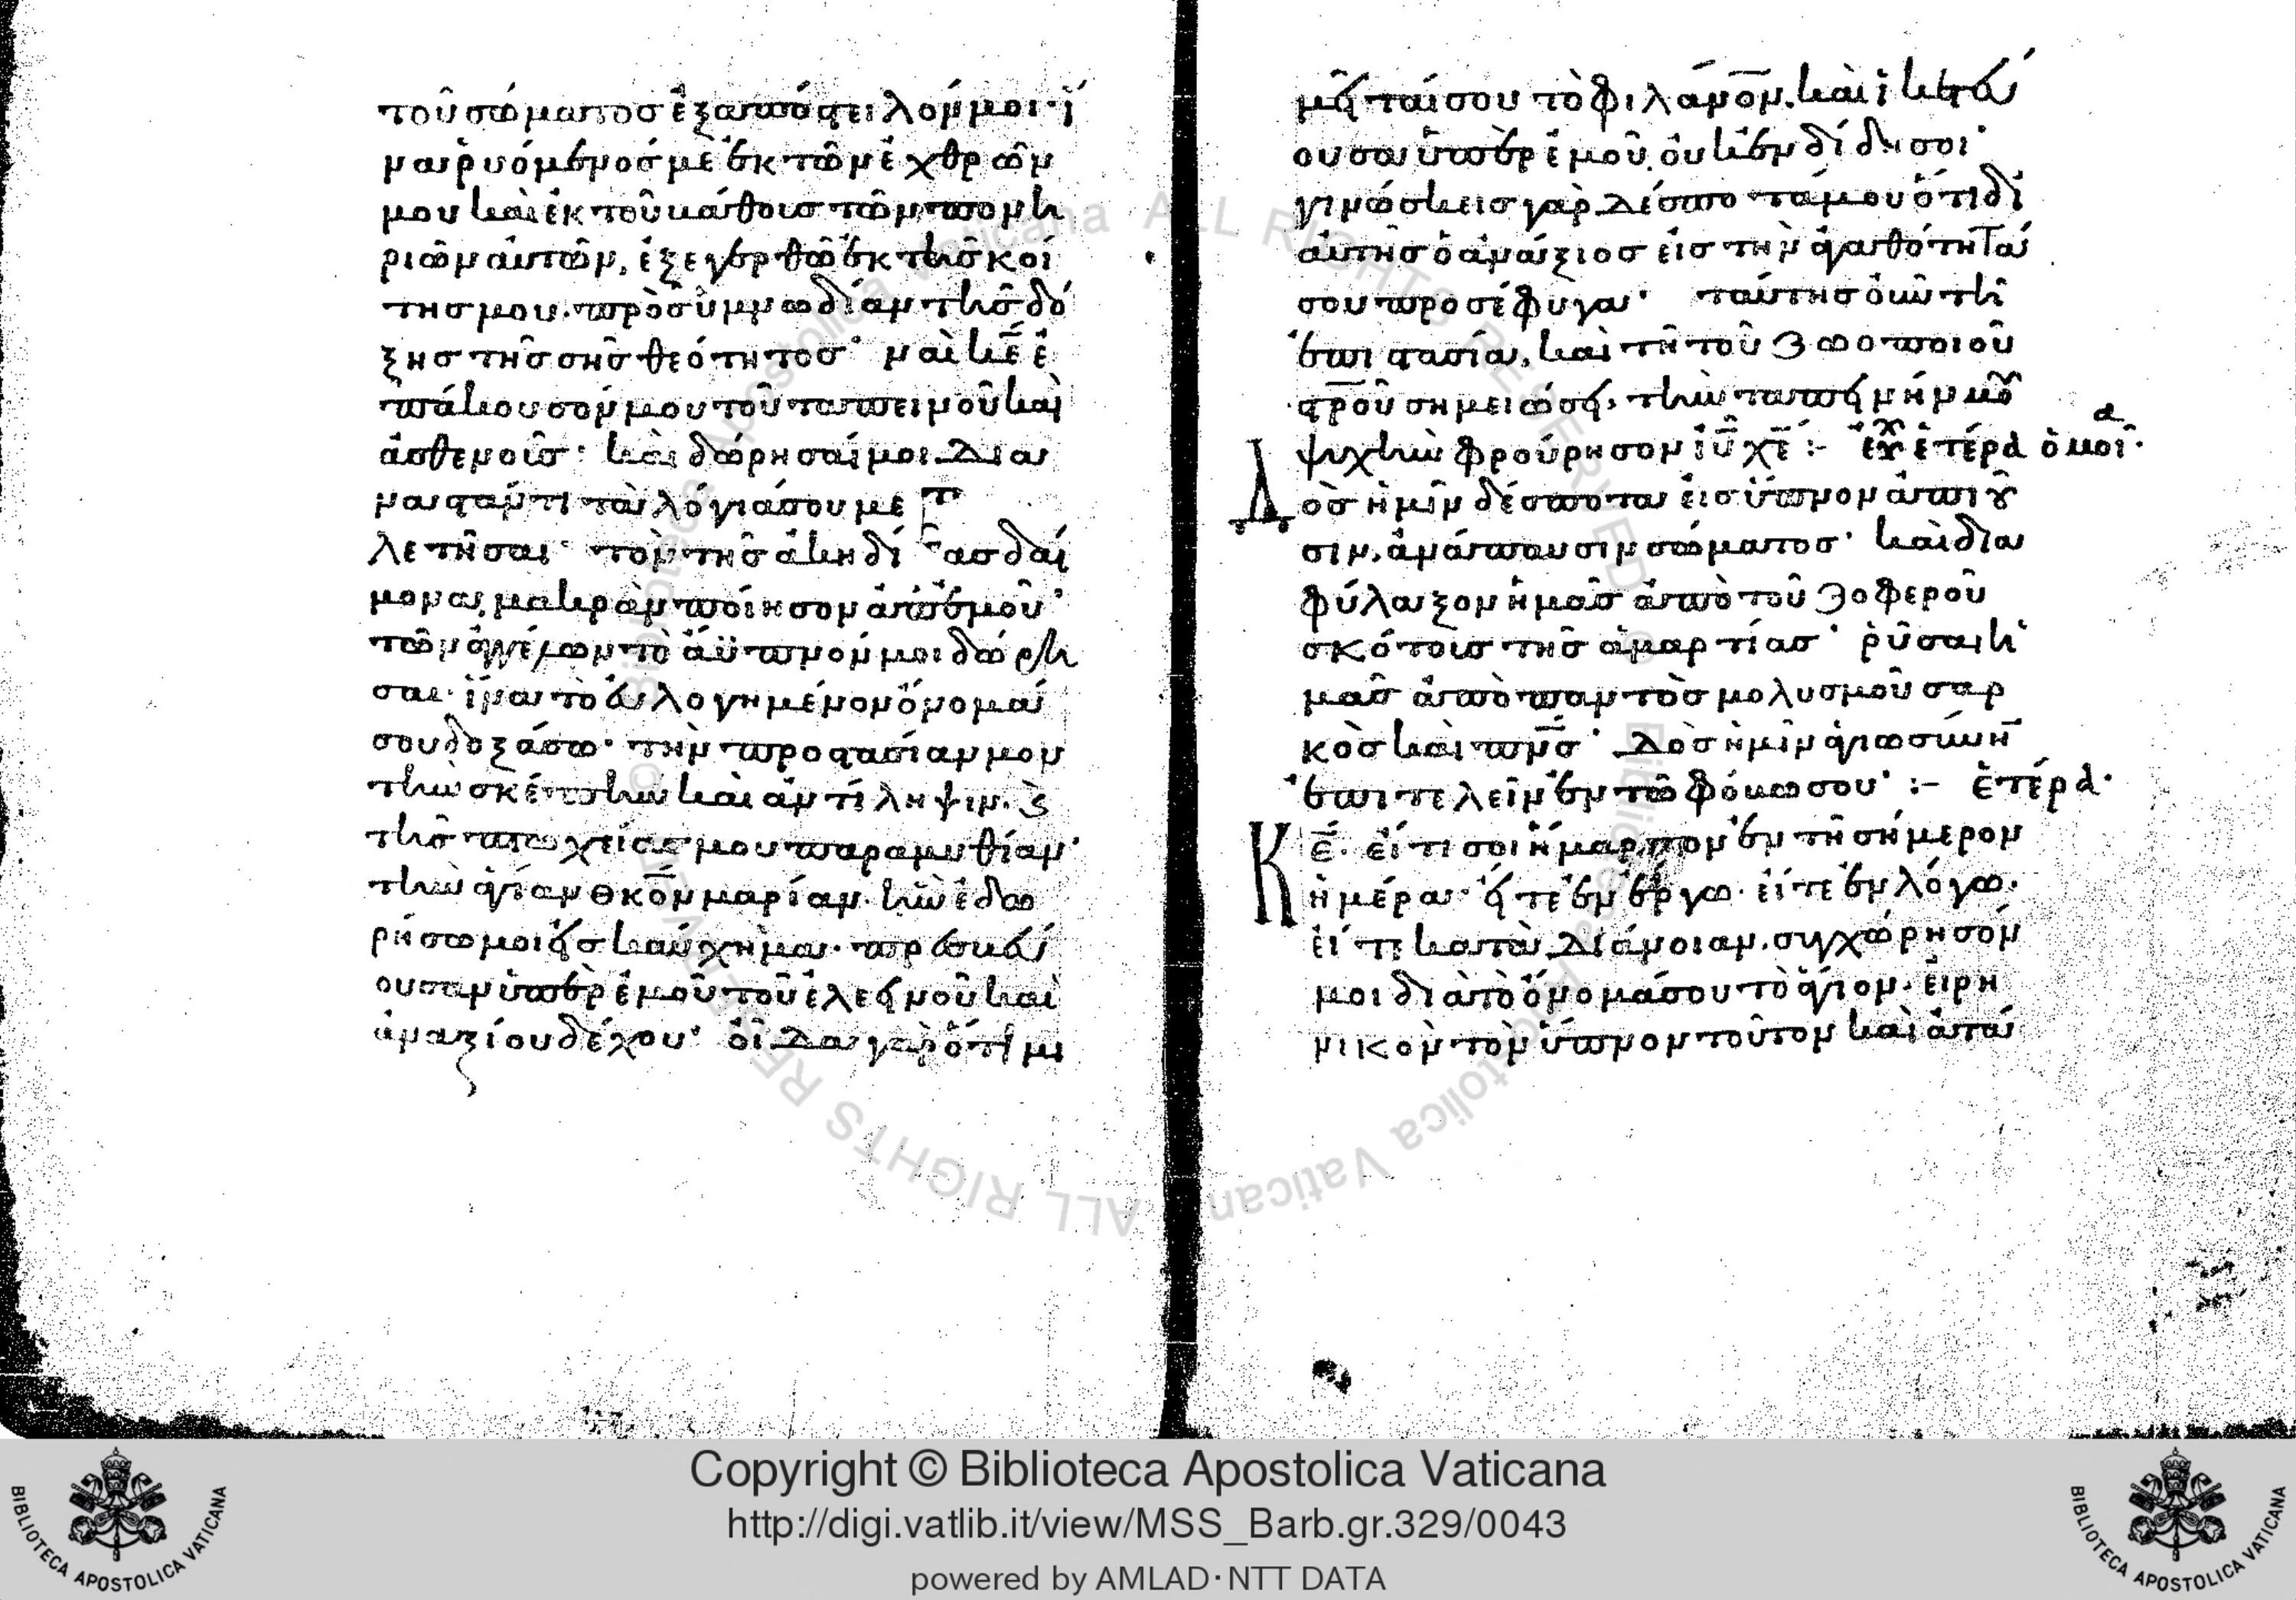 τοῦ σώματος ἐξαπόστειλόν μοι· ἵ
να ῥυόμενός με ἐκ τῶν ἐχθρῶν
μου καὶ ἐκ τοῦ πάθους τῶν πονη
ριῶν αὐτῶν, ἐξεγερθῶ ἐκ τῆς κοί
της μου. πρὸς ὑμνωδίαν τῆς δό
ξης τῆς σῆς θεότητος· ναὶ κε̅ ἐ
πάκουσόν μου τοῦ ταπεινοῦ καὶ
ἀσθενοῦς· καὶ δώρησαί μοι δια
ναστάντι τὰ λόγιά σου με
λετῆσαι· τὸν τῆς ἀκηδίας δαί
μονα, μακρὰν ποίησον ἀπ' ἐμοῦ·
τὸ ἄϋπνόν μοι δώρη
σαι· ἵνα τὸ εὐλογημένον ὄνομά
σου δοξάσω· τὴν προστασίαν μου
τὴν σκέπην καὶ ἀντίληψιν. ϗ
τῆς πτωχείας μου παραμυθίαν·
τὴν ἁγίαν θκο̅ν μαρίαν· ἣν ἐδω
ρήσω μοι εἰς καύχημα· πρεσβεύ
ουσαν ὑπὲρ ἐμοῦ τοῦ ἐλεεινοῦ καὶ
ἀναξίου δέχου· οἶδα γὰρ ὅτι μι
μεῖταί σου τὸ φιλάνο̅ν. καὶ ἱκετεύ
ουσα ὑπὲρ ἐμοῦ, οὐκ ἐνδίδησοι·
γινώσκεις γὰρ δέσποτά μου ὅτι δι'
αὐτῆς ὁ ἀνάξιος εἰς τὴν ἀγαθότητά
σου προσέφυγα· ταύτης οὖν τῆ
ἐπιστασία, καὶ τῆ τοῦ ζωοποιοῦ
στρο̅ῦ σημειώσει, τὴν ταπεινήν μου
ψυχὴν φρούρησον ιυ̅ χε̅ :- εὐχ ἑτέρα ὁμοί·
Δὸς ἡμῖν δέσποτα εἰς ὕπνον ἀπιοῦ
σιν, ἀνάπαυσιν σώματος· καὶ δια
φύλαξον ἡμᾶς ἀπὸ τοῦ ζοφεροῦ
σκότους τῆς ἁμαρτίας· ῥῦσαι ἡ
μᾶς ἀπὸ παντὸς μολυσμοῦ σαρ
κὸς καὶ πνς̅· Δὸς ἡμῖν ἁγιωσύνη
ἐπιτελεῖν ἐν τῶ φόβω σου· :- ἑτέρα·
Κε̅. εἴ τι σοι ἥμαρτον ἐν τῆ σήμερον
ἡμέρα· εἴτε ἐν ἔργω· εἴτε ἐν λόγω·
εἴ τι κατὰ διάνοιαν. συγχώρησόν
μοι διὰ τὸ ὄνομά σου τὸ ἅγιον. εἰρη
νικὸν τὸν ὕπνον τοῦτον καὶ ἀτά
Copyright © Biblioteca Apostolica Vaticana
http://digi.vatlib.it/view/MSS_Barb.gr.329/0043
powered by AMLAD·NTT DATA
BIBLIOTECA APOSTOLICA VATICANA
BIBLIOTECA APOSTOLICA VATICANA